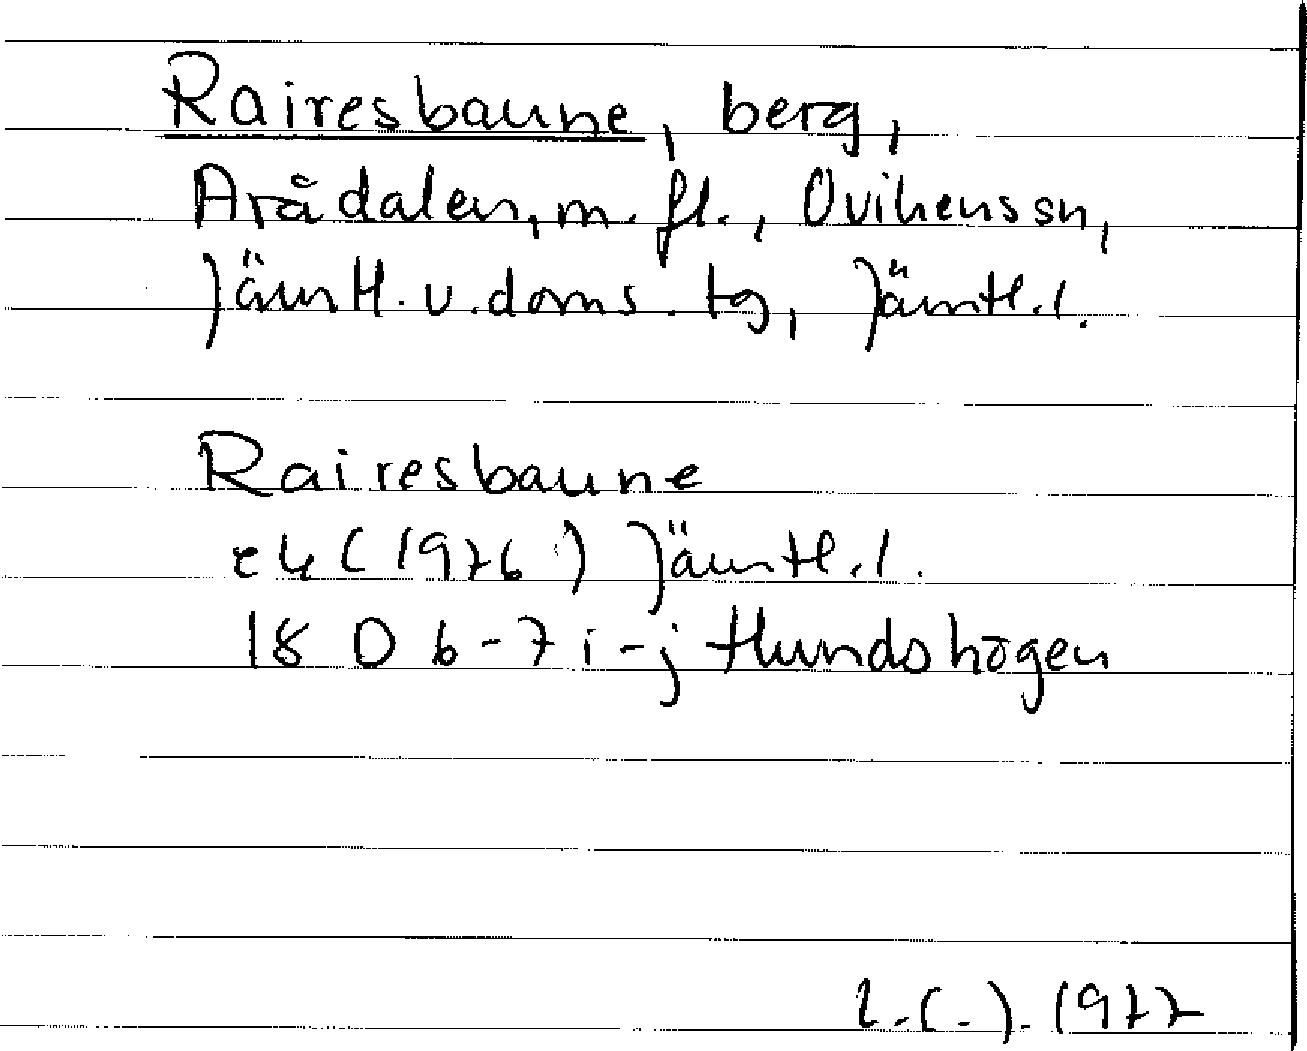 Rairesbaune, berg,
Arådalen, m. fl., Ovikens sn,
Jämtl. v. doms. tg, Jämtl. l.
Rairesbaune
ek (1976) Jämtl. l.
18 D 6-7 i-j Hundshögen
1977